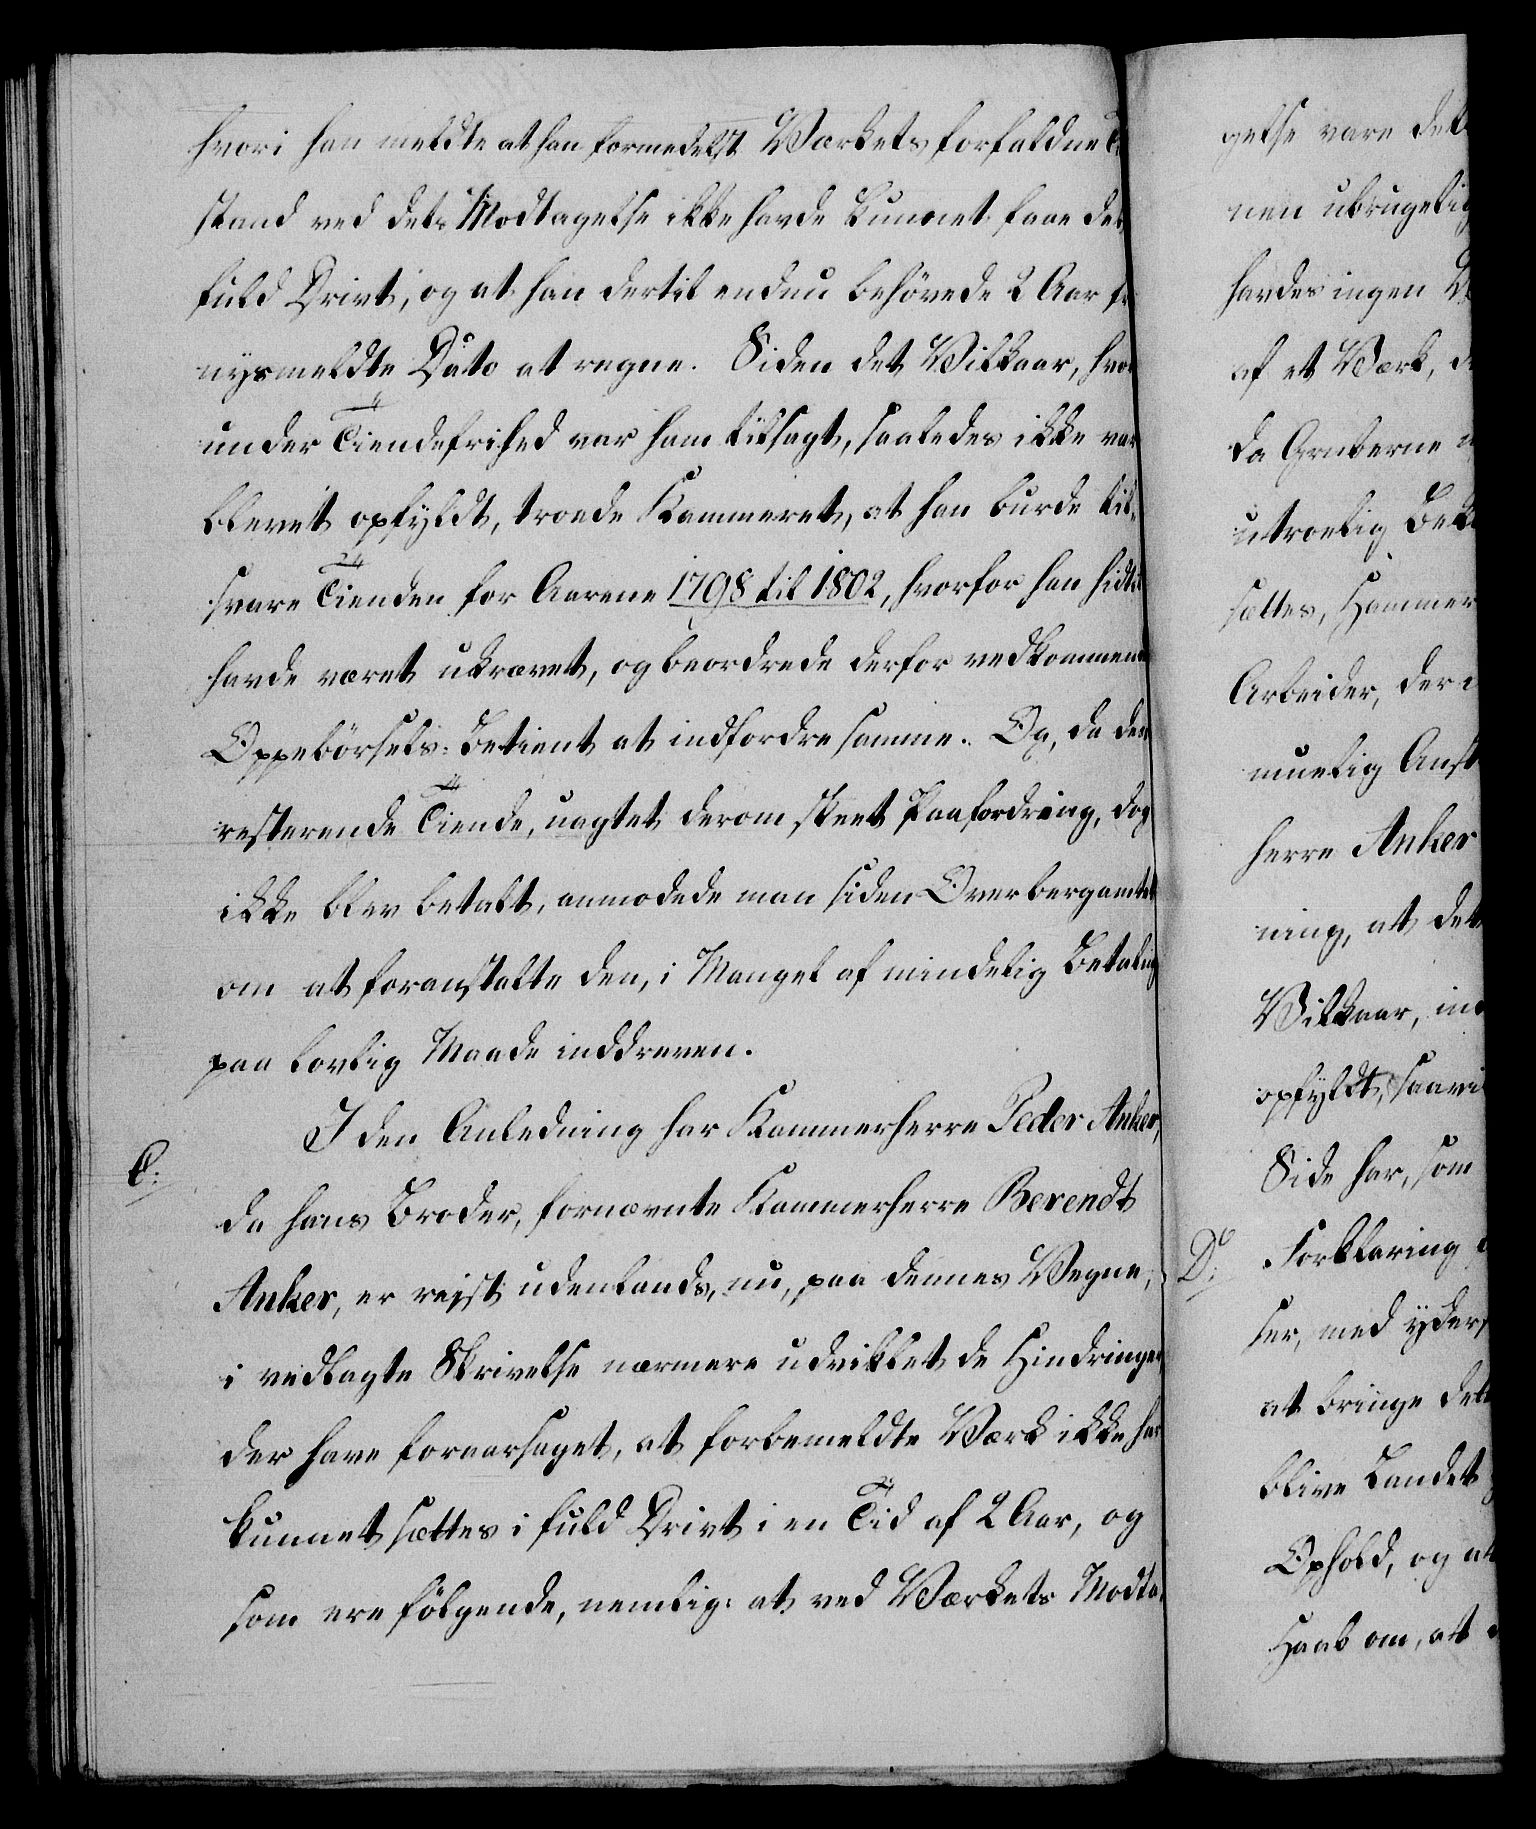 hvori han meldte at han formedelst Værkets forfaldne
stand ved dets Modtagelse ikke havde kunnet faae det
fuld Drivt, og at han dertil endnu behövede 2 Aar
nysmeldte Dato at regne. Siden det Vilkaar, hvor
under Tiendefrihed var ham tilsagt, saaledes ikke var
blevet opfyldt, troede Kammeret, at han burde til-
svare Tienden for Aarene 1798 til 1802, hvorfor han hidtil
havde været ukrævet, og beordrede derfor vedkommende
Oppebörsels-Betient at indfordre samme. Og, da den
resterende Tiende, uagtet derom skeet Paafordring, dog
ikke blev betalt, anmodede man siden Overbergamtet
om at foranstalte den, i Mangel af mindelig Betaling
paa lovlig Maade inddreven.
I den Anledning har Kammerherre Peder Anker,
C:
da hans Broder, fornævnte Kammerherre Berendt
Anker, er reist udenlands, nu, paa dennes Vegne,
i vedlagte Skrivelse nærmere udviklet de Hindringer
der have foraarsaget, at forbemeldte Værk ikke har
kunnet sættes i fuld Drivt i en Tid af 2 Aar, og
som ere fölgende, nemlig: at ved Værkets Modta-
gelse vare det
nen ubrugelig
havdes ingen
af et Værk,
da Gruberne
utroelig Bek
sættes, Hammer
Arbeider, der
muelig Anst
herre Anker
ning, at det
Vilkaar, in
opfyldt, saavi
Side har, som
D:
Forklaring
ser, med yders
at bringe det
blive Landet
Ophold, og at
Haab om, at